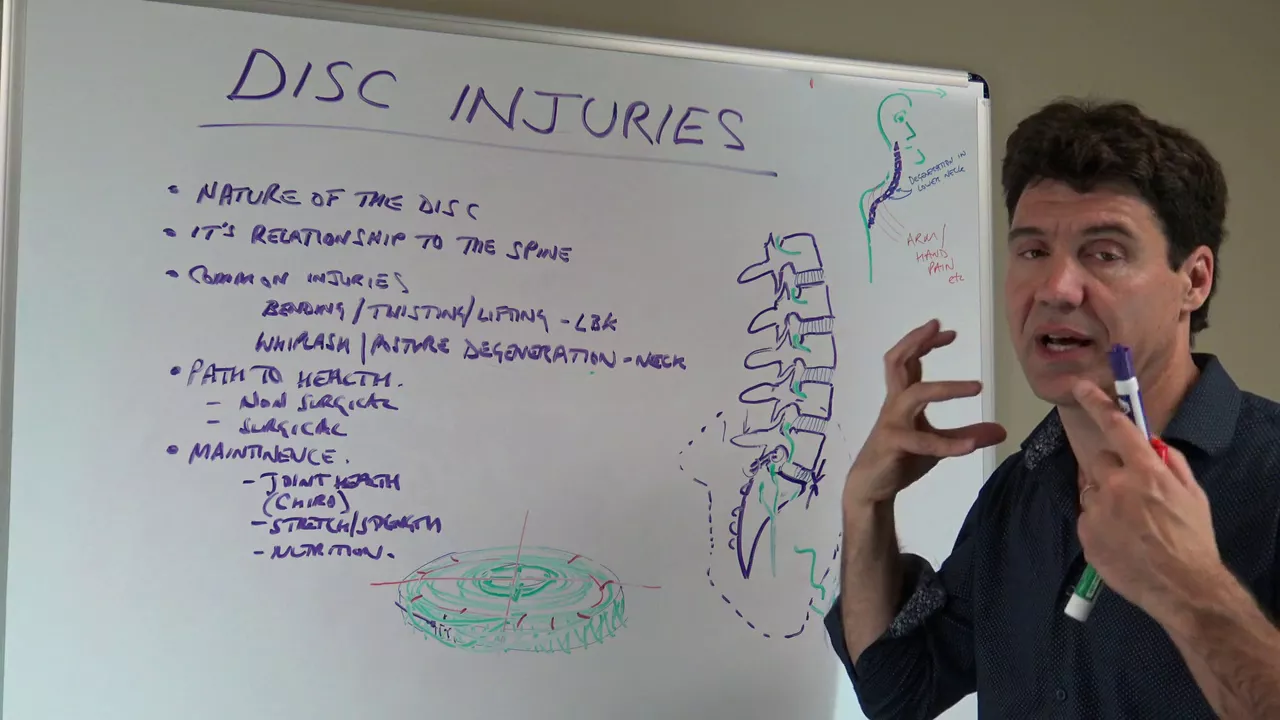 DISC INJURIES
• NATURE OF THE DISC
• IT'S RELATIONSHIP TO THE SPINE
• COMMON INJURIES
BENDING/TWISTING/LIFTING - LBK
WHIPLASH/POSTURE DEGENERATION - NECK
• PATH TO HEALTH.
- NON SURGICAL
- SURGICAL
• MAINTINENCE.
- JOINT HEALTH
(CHIRO)
- STRETCH/STRENGTH
- NUTRITION.
DEGENERATION IN
LOWER NECK
ARM/
HAND
PAIN
etc